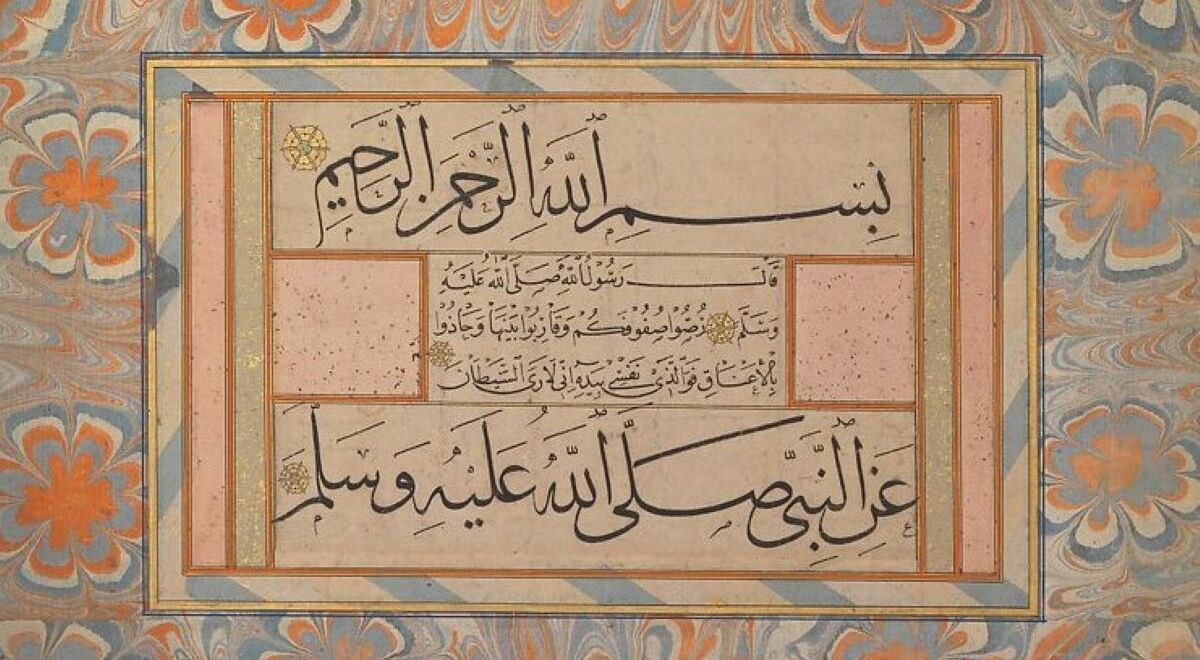 بِسْمِ اللّٰهِ الرَّحْمٰنِ الرَّحِيمِ
قَالَ رَسُوْلُ اللّٰهِ صَلَّى اللّٰهُ عَلَيْهِ
وَسَلَّمَ رُصُّوْا صُفُوْفَكُمْ وَقَارِبُوْا بَيْنَهَا وَحَاذُوْا
بِالْاَعْنَاقِ فَوَالَّذِىْ نَفْسِىْ بِيَدِهِ اِنِّى لَاَرَى الشَّيْطَانَ
عَنِ النَّبِىِّ صَلَّى اللّٰهُ عَلَيْهِ وَسَلَّمَ